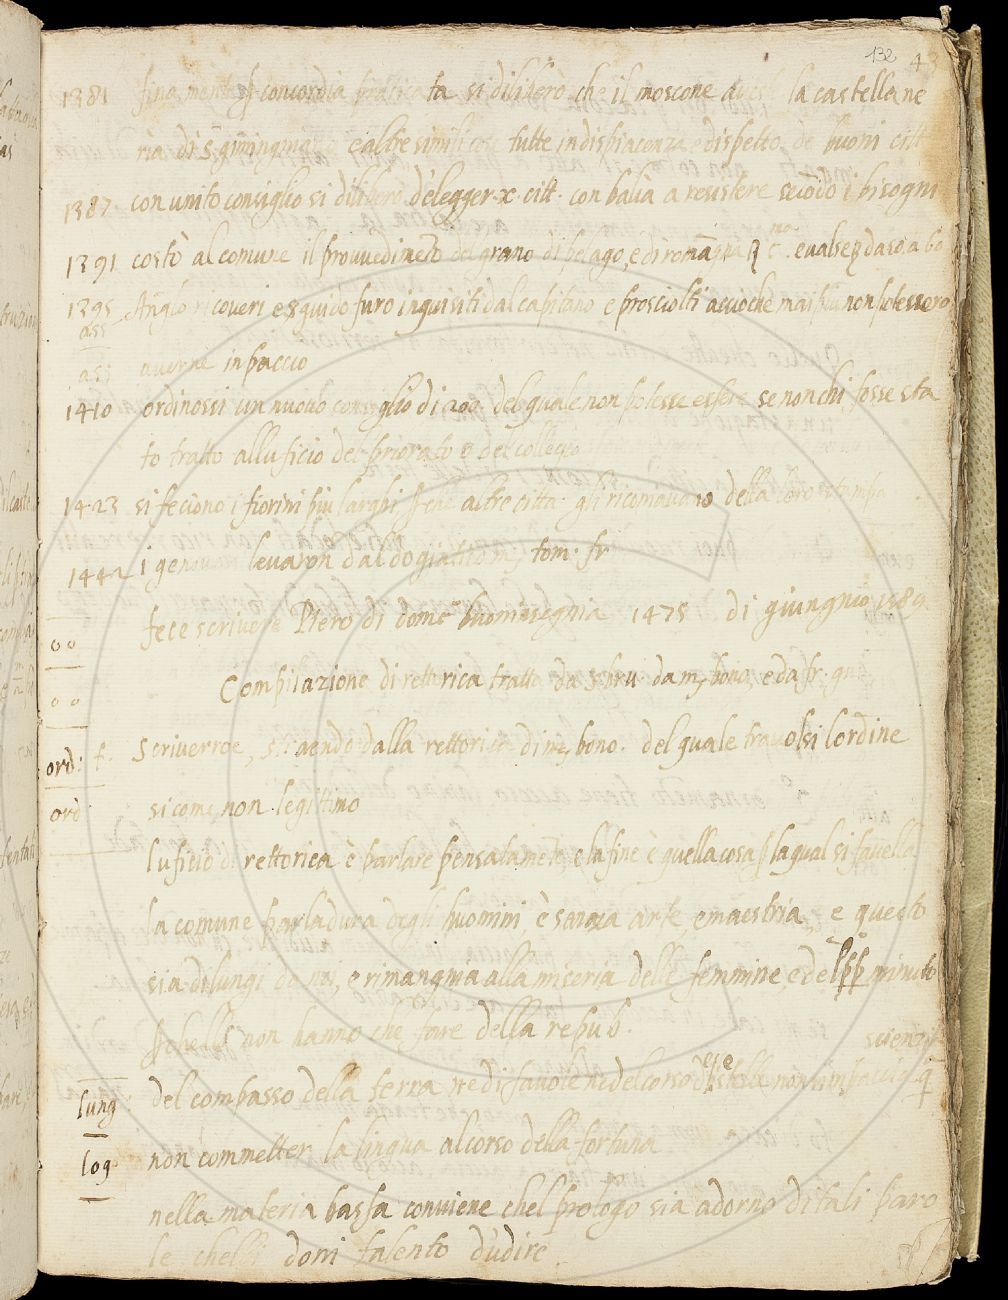 132 43
1381 finamente concordia praticata si diliberò che il moscone avessi la castellane
ria di e altre simili cose tutte in dispiacenza e dispetto de buoni citt
1387 con unito consiglio si diliberò d'elegger x citt. con balìa a resistere secōdo i bisogni
1391 costò al comune il provvedimēto del grano di pelago, e di romāgna
1395 ricoveri e guido furo inquisiti dal capitano e prosciolti acciochè mai più non potessero
ass
averne inpaccio
1410 ordinossi un nuovo consiglio di 200 del quale non potesse essere se non chi fosse sta
to tratto all uficio del priorato o del collegio
1423 si feciono i fiorini più larghi che altre città gli ricomavano della loro stampa
1442 i genovesi levaron dal dogiatico m tom. fr
fece scrivere Piero di domc buoninsegnia 1475 di giungnio 1589
oo
Compilazione di rettorica tratta da bru da m bono, e da fr. gui
oo
ord: f. Scriverroe, straendo dalla rettorica di m bono. del quale travolsi lordine
ord si come non legittimo
luficio di rettorica è parlare pensatamēte, e la fine è quella cosa la qual si favella
la comune parladura degli huomini, è sanza arte, e maestria, e questo
sia dilungi da noi, e rimangnia alla miseria delle femmine, e del minuto
chelli non hanno che fare della repub.
scienzie
lung del compasso della terra ne di favole ne del corso delle stelle non
log non commetter la lingua al corso della fortuna
nella materia bassa conviene chel prologo sia adorno di tali paro
le chelli doni talento d'udire